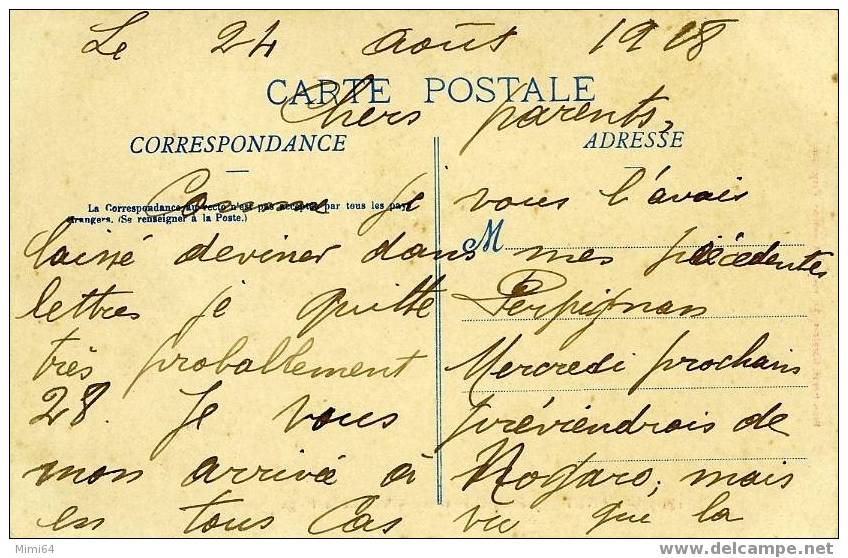 Le 24 août 1918
CARTE POSTALE
Chers parents,
CORRESPONDANCE
ADRESSE
La Correspondance au recto n'est pas acceptée par tous les pays
étrangers. (Se renseigner à la Poste.)
Comme je vous l'avais
M
laissé deviner dans mes précédentes
lettres je quitte Perpignan
très proballement Mercredi prochain
28. Je vous préviendrois de
mon arrivée à Nogaro, mais
en tous Cas vu que la
Mimi64
www.delcampe.net